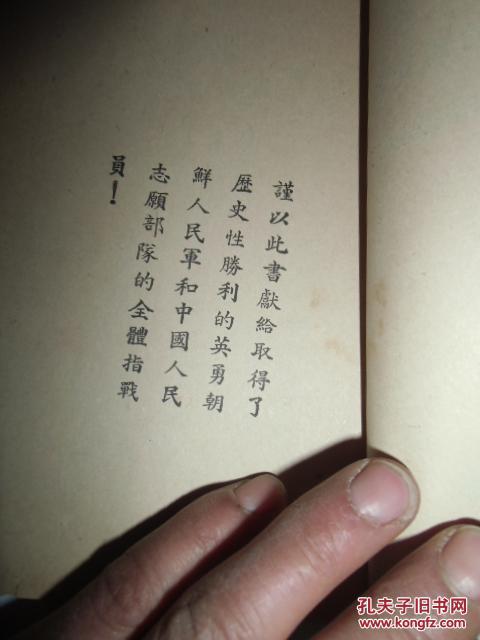 謹以此書獻給取得了
歷史性勝利的英勇朝
鮮人民軍和中國人民
志願部隊的全體指戰
員！
孔夫子旧书网
www.kongfz.com